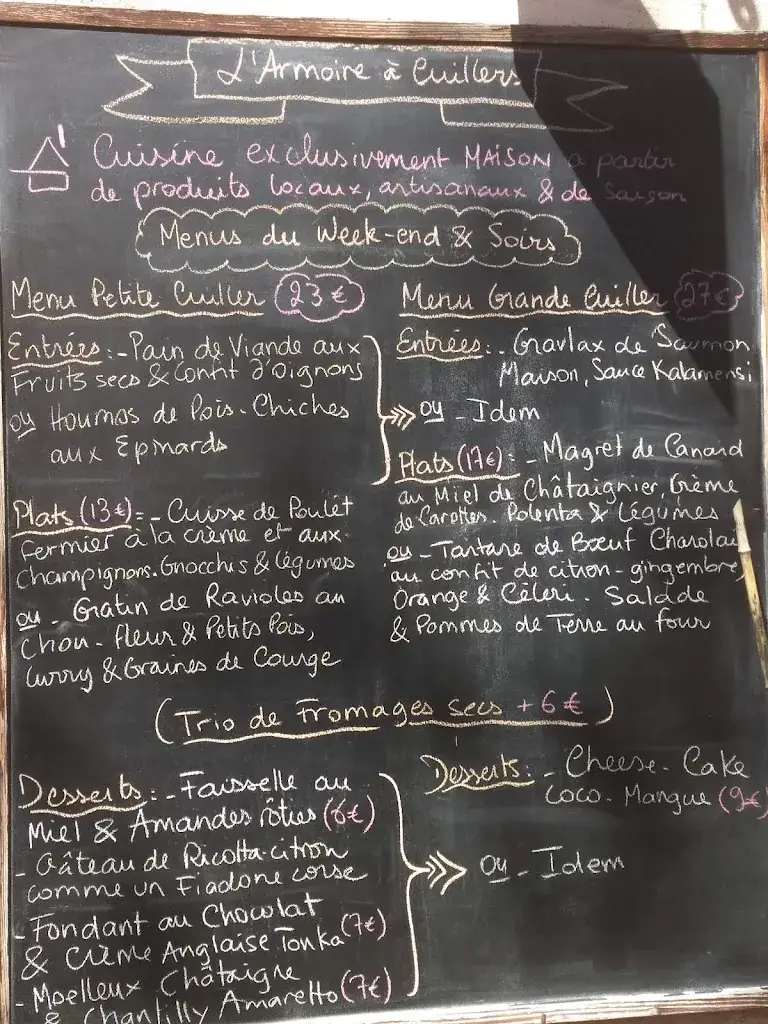 L'Armoire à Cuillers
Cuisine exclusivement MAISON à partir
de produits locaux, artisanaux & de saison
Menus du Week-end & Soirs
Menu Petite Cuiller 23€
Entrées:- Pain de Viande aux
Fruits secs & Confit d'oignons
ou Houmos de Pois-Chiches
aux Epinards
Plats (13€):- Cuisse de Poulet
fermier à la crème et aux
champignons. Gnocchis & légumes
ou - Gratin de Ravioles au
Chou-fleur & Petits Pois,
curry & Graines de Courge
Menu Grande Cuiller 27€
Entrées:. Gravlax de Saumon
Maison, Sauce Kalamensi
ou - Idem
Plats (17€):- Magret de Canard
au Miel de Châtaignier, Crème
de Carottes. Polenta & Légumes
ou - Tartare de Bœuf Charolais
au confit de citron-gingembre,
Orange & Céleri. Salade
& Pommes de Terre au four
(Trio de Fromages secs +6€)
Desserts:- Faisselle au
Miel & Amandes rôties (6€)
- Gâteau de Ricotta-citron
comme un Fiadone corse
- Fondant au Chocolat
& Crème Anglaise Tonka (7€)
- Moelleux Châtaigne
& Chantilly Amaretto (7€)
Desserts: - Cheese-Cake
Coco-Mangue (9€)
ou - Idem